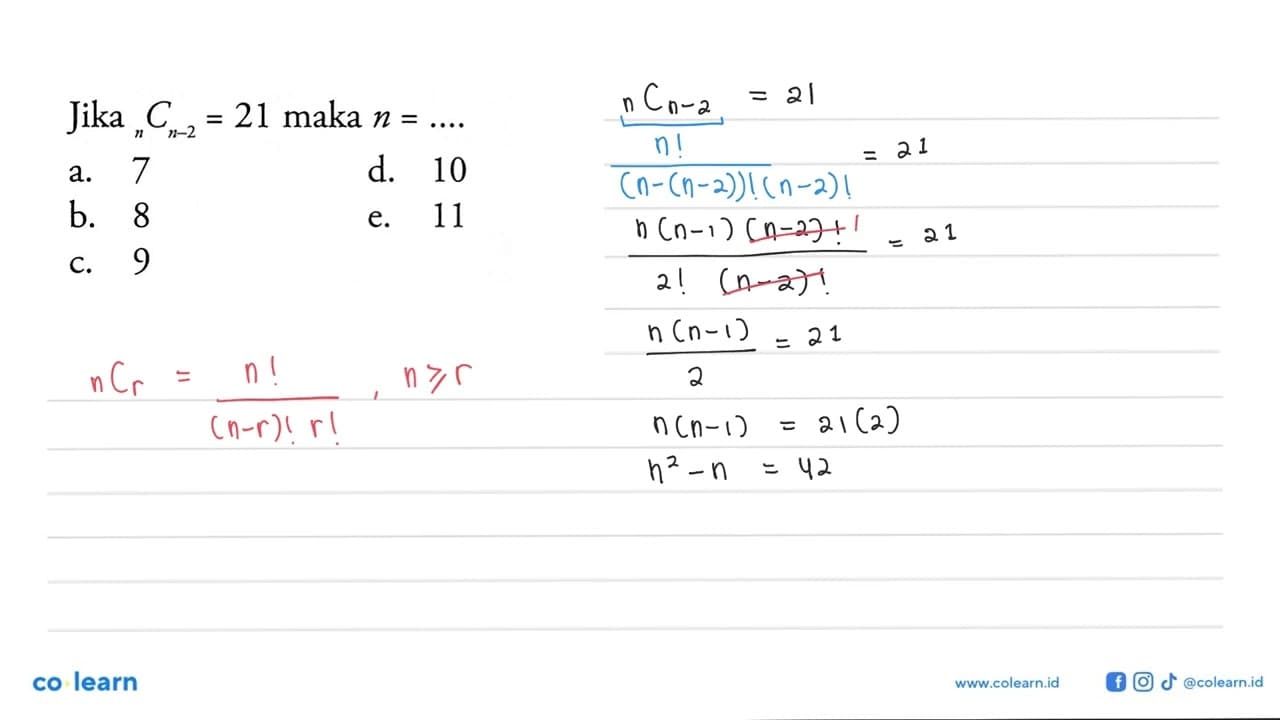 Jika nCn-2 = 21 maka n = ....
a. 7 d. 10
b. 8 e. 11
c. 9
nCr = n! / (n-r)! r! , n ≥ r
nCn-2 = 21
n! / (n-(n-2))!(n-2)! = 21
n(n-1)(n-2)! 1 / 2! (n-2)! = 21
n(n-1) / 2 = 21
n(n-1) = 21(2)
n² - n = 42
co learn
www.colearn.id @colearn.id